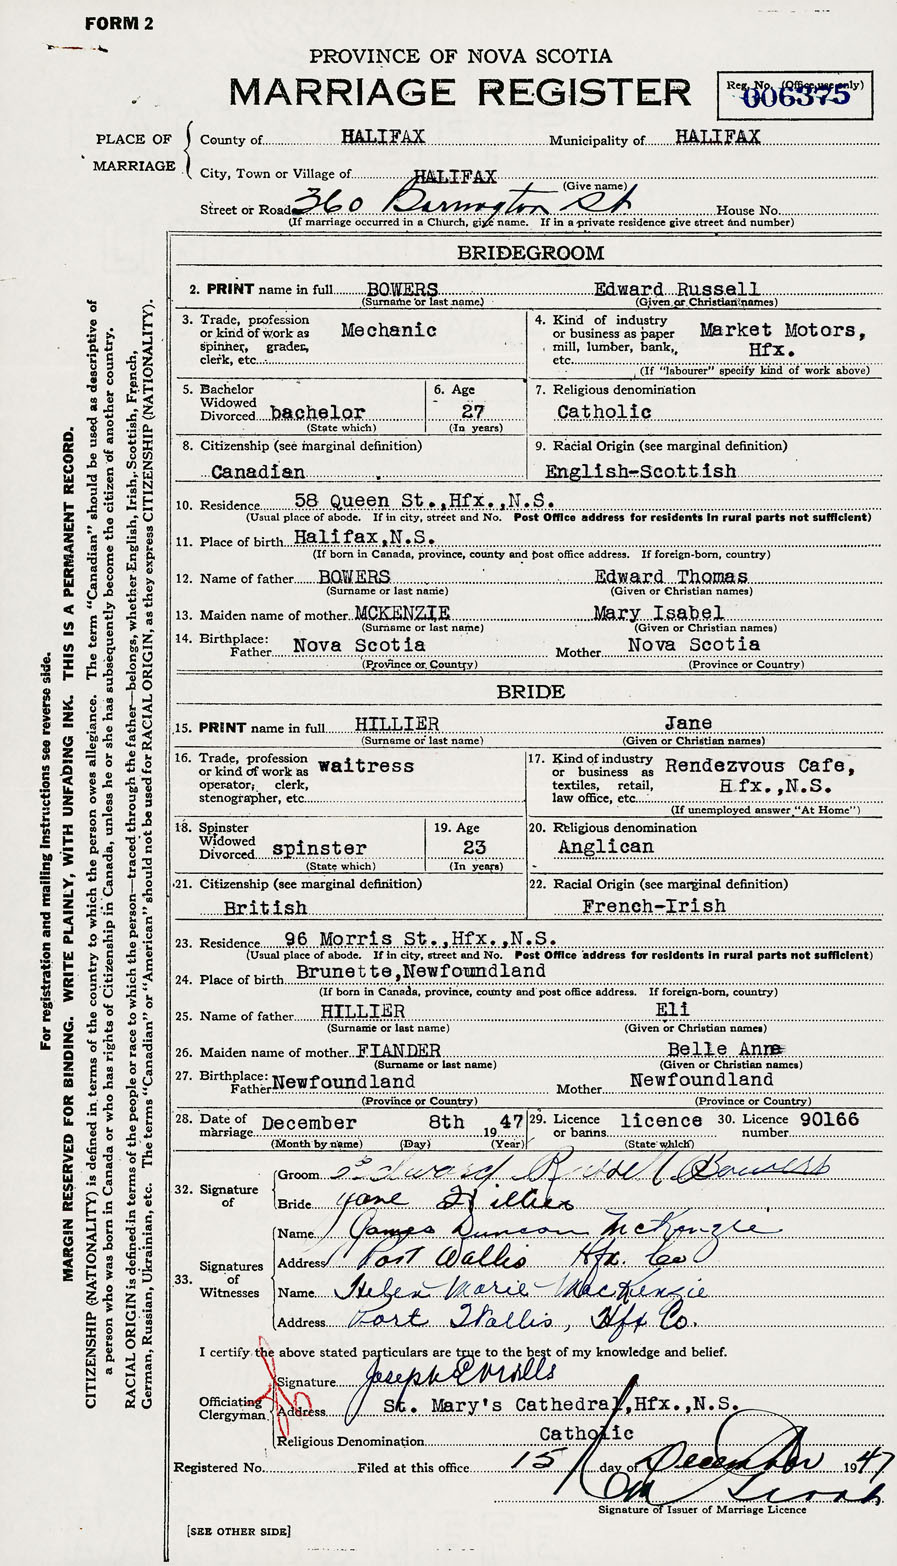 FORM 2
PROVINCE OF NOVA SCOTIA
MARRIAGE REGISTER
Reg. No. (Office use only)
006375
PLACE OF MARRIAGE
County of HALIFAX Municipality of HALIFAX
City, Town or Village of HALIFAX
(Give name)
Street or Road 360 Barrington St House No.
(If marriage occurred in a Church, give name. If in a private residence give street and number)
BRIDEGROOM
2. PRINT name in full BOWERS Edward Russell
(Surname or last name) (Given or Christian names)
3. Trade, profession or kind of work as spinner, grader, clerk, etc. Mechanic
4. Kind of industry or business as paper mill, lumber, bank, etc. Market Motors, Hfx.
(If "labourer" specify kind of work above)
5. Bachelor Widowed Divorced bachelor
(State which)
6. Age 27
(In years)
7. Religious denomination
Catholic
8. Citizenship (see marginal definition)
Canadian
9. Racial Origin (see marginal definition)
English-Scottish
10. Residence 58 Queen St.,Hfx.,N.S.
(Usual place of abode. If in city, street and No. Post Office address for residents in rural parts not sufficient)
11. Place of birth Halifax,N.S.
(If born in Canada, province, county and post office address. If foreign-born, country)
12. Name of father BOWERS Edward Thomas
(Surname or last name) (Given or Christian names)
13. Maiden name of mother MCKENZIE Mary Isabel
(Surname or last name) (Given or Christian names)
14. Birthplace: Father Nova Scotia Mother Nova Scotia
(Province or Country) (Province or Country)
BRIDE
15. PRINT name in full HILLIER Jane
(Surname or last name) (Given or Christian names)
16. Trade, profession or kind of work as operator, clerk, stenographer, etc. waitress
17. Kind of industry or business as textiles, retail, law office, etc. Rendezvous Cafe, Hfx.,N.S.
(If unemployed answer "At Home")
18. Spinster Widowed Divorced spinster
(State which)
19. Age 23
(In years)
20. Religious denomination
Anglican
21. Citizenship (see marginal definition)
British
22. Racial Origin (see marginal definition)
French-Irish
23. Residence 96 Morris St.,Hfx.,N.S.
(Usual place of abode. If in city, street and No. Post Office address for residents in rural parts not sufficient)
24. Place of birth Brunette,Newfoundland
(If born in Canada, province, county and post office address. If foreign-born, country)
25. Name of father HILLIER Eli
(Surname or last name) (Given or Christian names)
26. Maiden name of mother FIANDER Belle Anne
(Surname or last name) (Given or Christian names)
27. Birthplace: Father Newfoundland Mother Newfoundland
(Province or Country) (Province or Country)
28. Date of marriage December 8th 1947
(Month by name) (Day) (Year)
29. Licence or banns licence
(State which)
30. Licence number 90166
32. Signature of
Groom Edward Russell Bowers
Bride Jane Hillier
33. Signatures of Witnesses
Name James Duncan McKenzie
Address Port Wallis Hfx. Co
Name Helen Marie MacKenzie
Address Port Wallis, Hfx Co.
I certify the above stated particulars are true to the best of my knowledge and belief.
Officiating Clergyman
Signature Joseph E
Address St. Mary's Cathedral,Hfx.,N.S.
Religious Denomination Catholic
Registered No. Filed at this office 15 day of December 1947
Signature of Issuer of Marriage Licence
[SEE OTHER SIDE]
For registration and mailing instructions see reverse side.
MARGIN RESERVED FOR BINDING. WRITE PLAINLY, WITH UNFADING INK. THIS IS A PERMANENT RECORD.
CITIZENSHIP (NATIONALITY) is defined in terms of the country to which the person owes allegiance. The term "Canadian" should be used as descriptive of
a person who was born in Canada or who has rights of Citizenship in Canada, unless he or she has subsequently become the citizen of another country.
RACIAL ORIGIN is defined in terms of the people or race to which the person—traced through the father—belongs, whether English, Irish, Scottish, French,
German, Russian, Ukrainian, etc. The terms "Canadian" or "American" should not be used for RACIAL ORIGIN, as they express CITIZENSHIP (NATIONALITY).